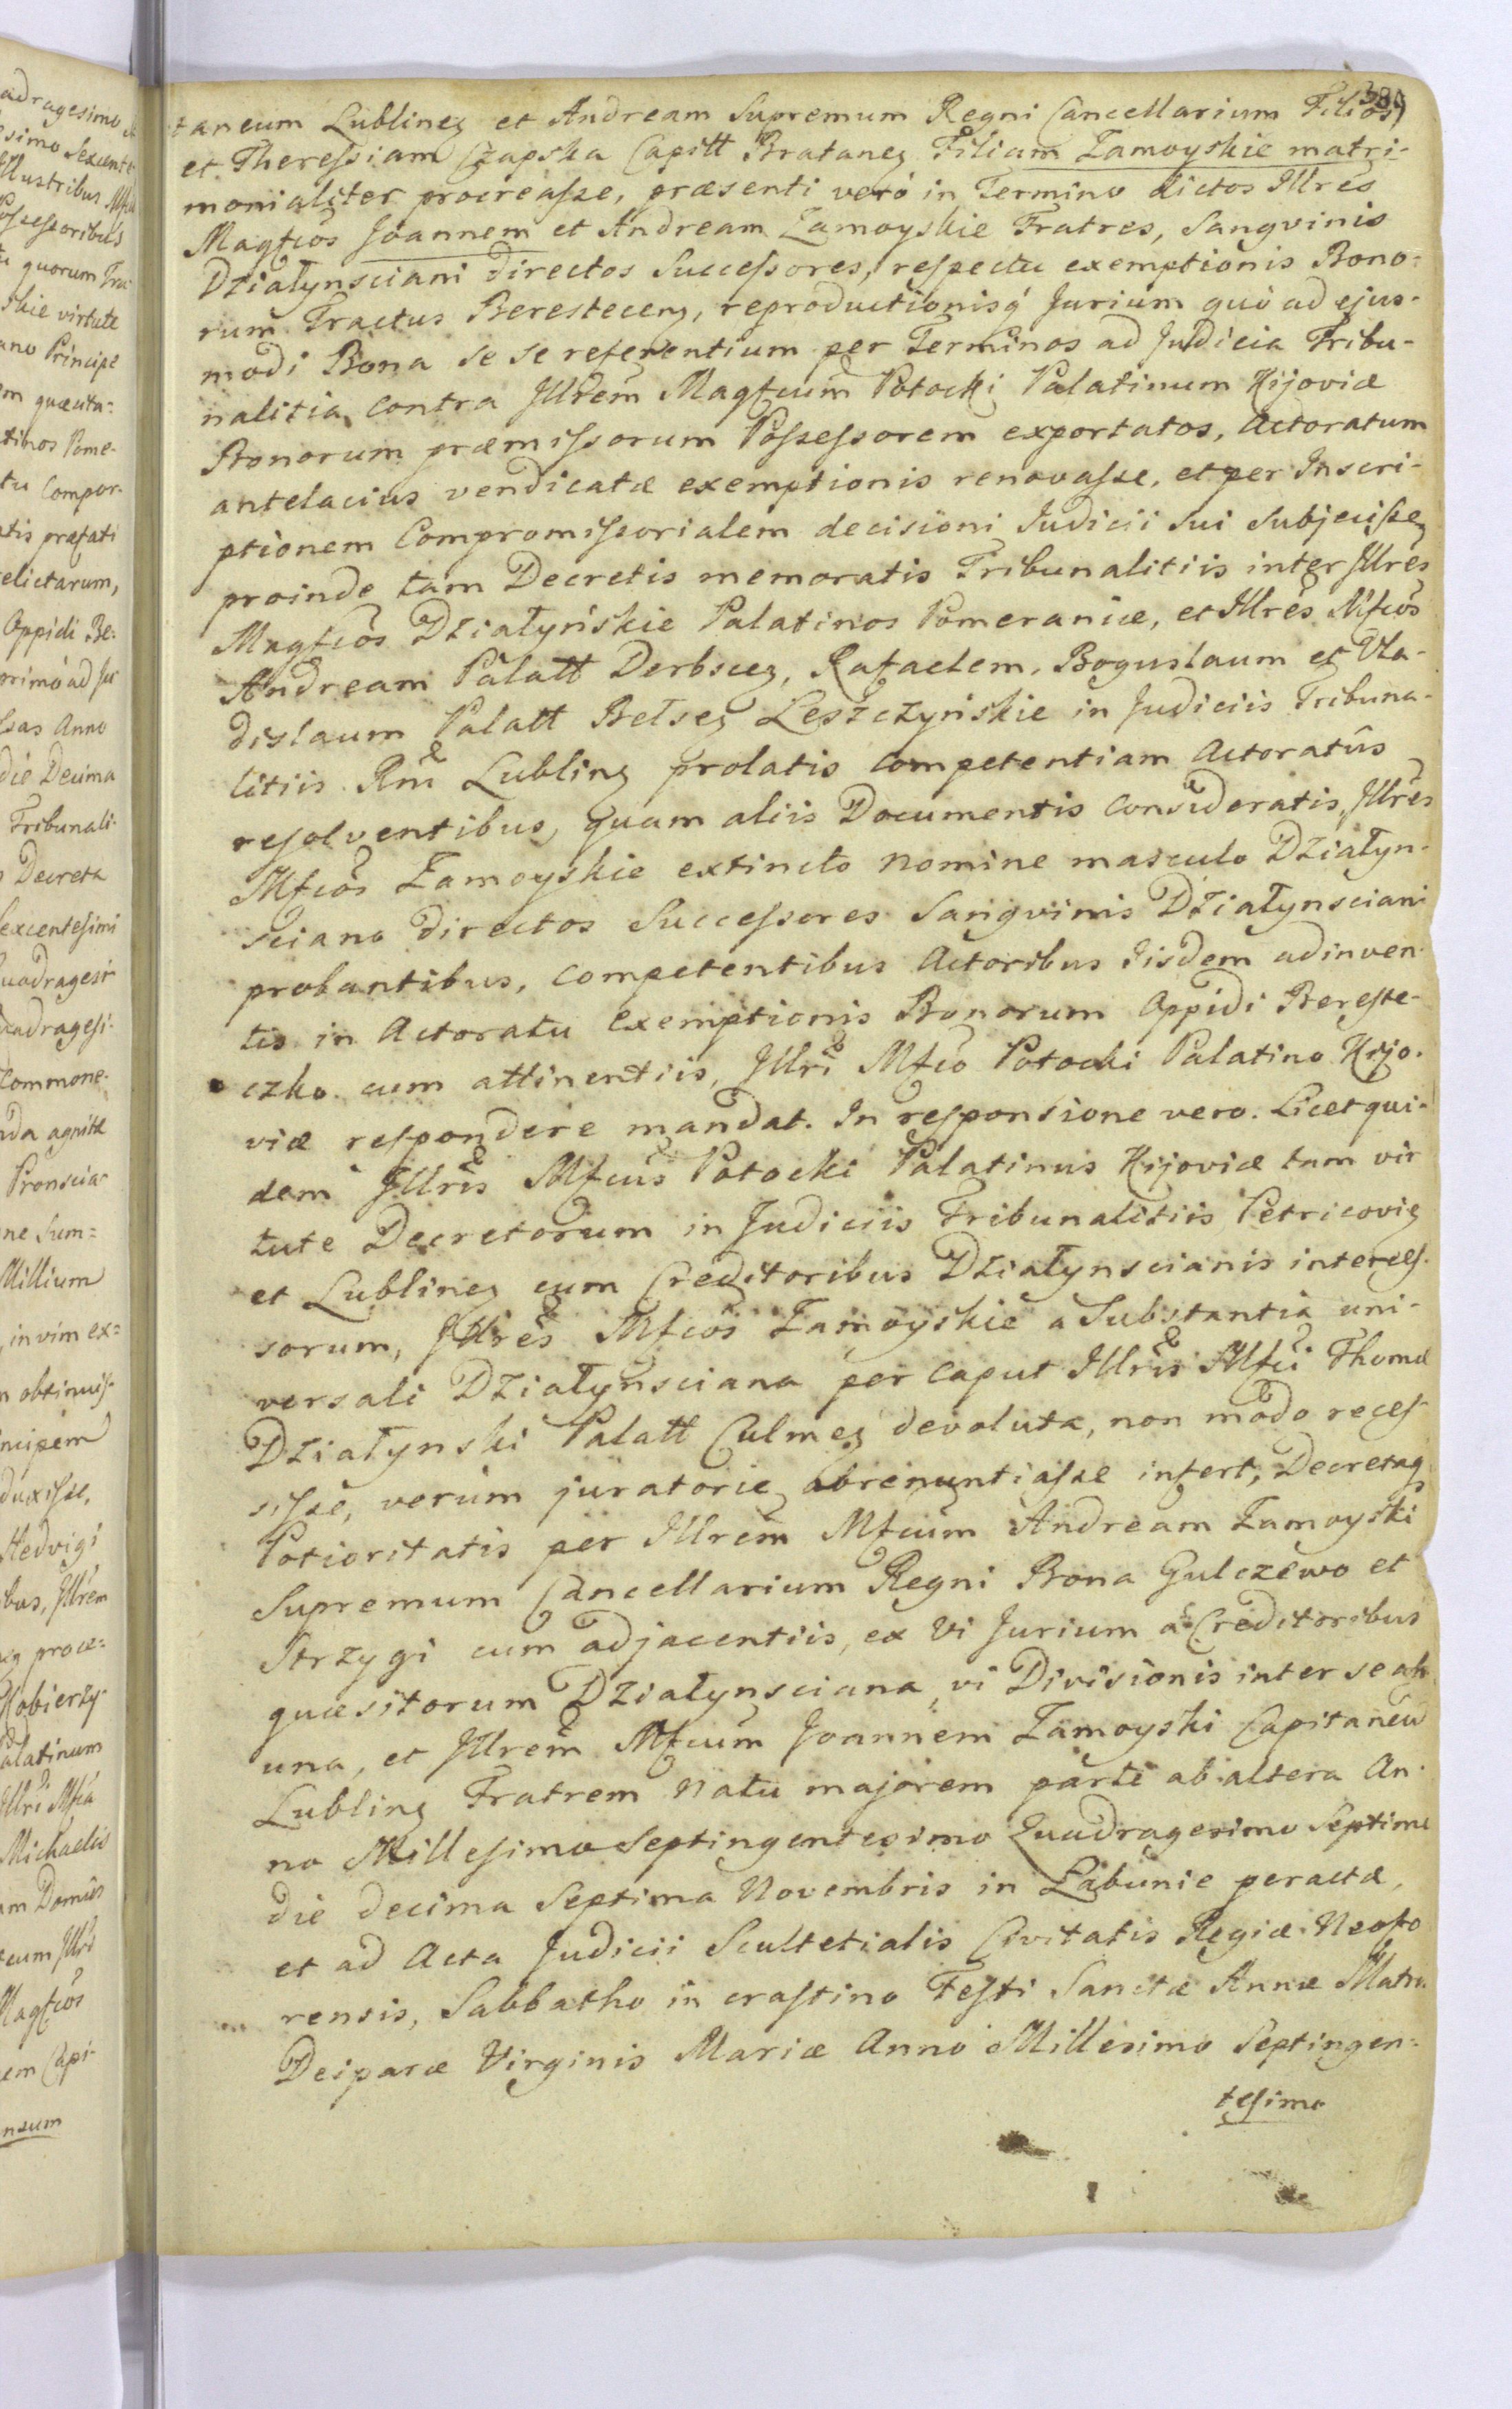 389
taneum Lublineȝ et Andream Supremum Regni Cancellarium Filios,
et Theressiam Czapska Capitt Brataneȝ Filiam Zamoyskie matri-
monialiter procreasse, præsenti veró in Termino dictos Illres
Magfcos Joannem et Andream Zamoyskie Fratres, Sangvinis
Działynsciani directos Successores, respectu exemptionis Bono-
rum Tractus Beresteceny, reproductionisq́ Jurium quó ad ejus-
modi Bona se se referentium per Terminos ad Judicia Tribu-
nalitia, contra Illrem Magfcum Potocki Palatinum Kijoviæ
Bonorum præmissorum Possessorem exportatos, Actoratum
antelacius vendicatæ exemptionis renovasse, et per Inscri-
ptionem Compromissorialem decisioni Judicii sui subjecisse,
proinde tam Decretis memoratis Tribunalitiis inter Illres
Magfcos Działyńskie Palatinos Pomeraniæ, et Illres Mfcos
Andream Palatt Derbsceȝ, Rafaelem, Boguslaum et Vla-
dislaum Palatt Bełseȝ Leszczyńskie in Judiciis Tribuna-
litiis Rni Lublinȝ prolatis competentiam Actoratûs
resolventibus, quam aliis Documentis consideratis, Illres
Mfcos Zamoyskie extincto nomine masculo Działyn-
sciano directos Successores Sangvinis Działynsciani
probantibus, competentibus Actoribus Iisdem adinven-
tis in Actoratu exemptionis Bonorum Oppidi Bereste-
czko cum attinentiis, Illri Mfco Potocki Palatino Kijo-
viæ respondere mandat. In responsione vero. Licet qui-
dem Illris Mfcus Potocki Palatinus Kijoviæ tam vir
tute Decretorum in Judiciis Tribunalitiis Petricoviȝ
et Lublineȝ cum Creditoribus Działynscianis interces-
sorum, Illres Mfcos Zamoyskie a Substantia uni-
versali Działynsciana per caput Illris Mfci Thomæ
Działynski Palatt Culmeȝ devoluta, non modo reces-
sisse, verùm juratorie abrenuntiasse infert, Decretaq
Potioritatis per Illrem Mfcum Andream Zamoyski
Supremum Cancellarium Regni Bona Gulczewo et
Strzygi cum adjacentiis, ex vi Jurium a Creditoribus
quæsitorum Działynsciana, vi Divisionis inter se ab
una, et Illrem Mfcum Joannem Zamoyski Capitaneu
Lublinȝ Fratrem natu majorem parte ab altera An-
no Millesimo Septingentesimo Quadragesimo Septimo
die decima Septima Novembris in Łabunie peractæ,
et ad Acta Judicii Scultetialis Civitatis Regiæ Neofo
rensis, Sabbatho in crastino Festi Sanctæ Annæ Matris
Deiparæ Virginis Mariæ Anno Millesimo Septingen-
tesimo